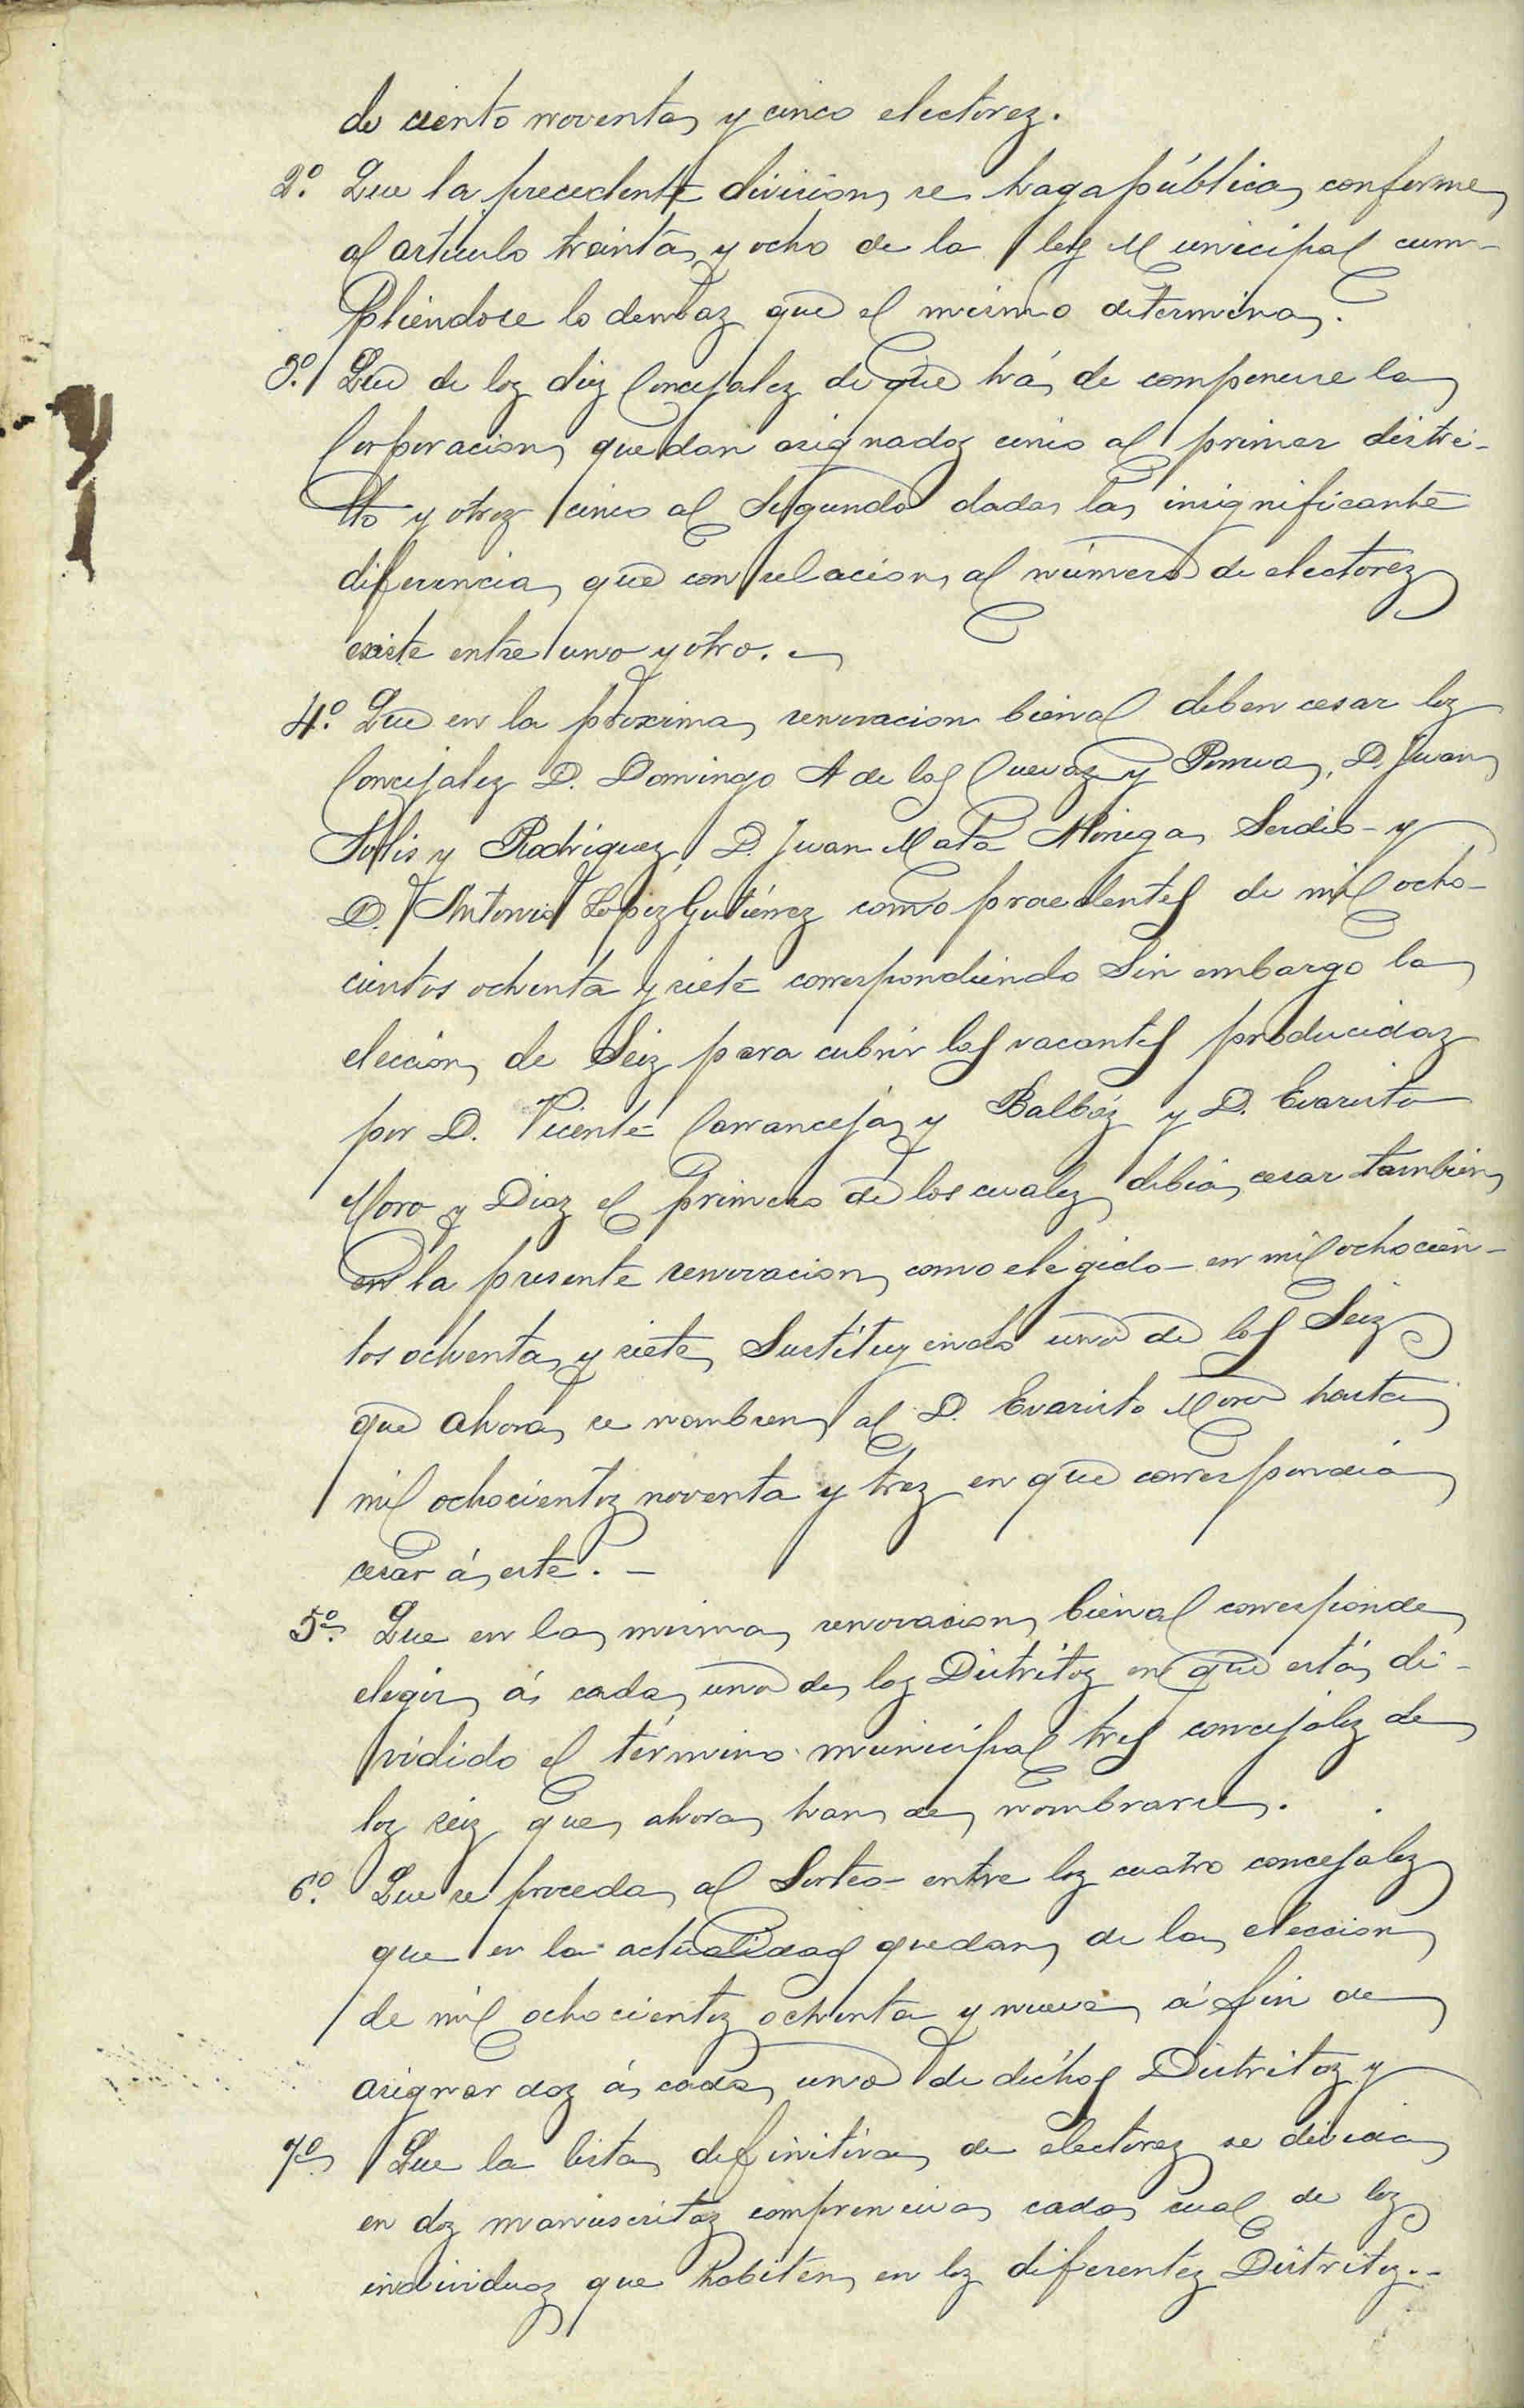 de ciento noventa y cinco electorez.
2º. Que la precedente division se haga pública conforme
al articulo treinta y ocho de la ley Municipal cum-
pliéndose lo demaz que el mismo determina.
3º. Que de loz diez Concejalez de que há de componerse la
Corporacion quedan asignadoz cinco al primer distri-
to y otroz cinco al Segundo dada la insignificante
diferencia que con relacion al número de electorez
existe entre uno y otro.
4º. Que en la próxima renovacion bienal deben cesar loz
Concejalez D. Domingo A de las Cuevaz y , D. Juan
Solis y Rodríguez, D. Juan Mata Noriega Serdio y
D. Antonio López Gutiérrez como procedentes de mil ocho-
cientos ochenta y siete correspondiendo Sin embargo la
eleccion de Seiz para cubrir las vacantes producidaz
por D. Vicente Carranceja y Balbáz y D. Evaristo
Moro y Diaz el primero de los cualez debia cesar tambien
en la presente renovacion como elegido en mil ochocien-
tos ochenta y siete, Sustituyendo uno de los Seiz
que ahora se nombren al D. Evaristo Moro hasta
mil ochocientoz noventa y trez en que correspondia
cesar á este.
5º. Que en la misma renovacion bienal corresponde
elegir á cada uno de loz Distritoz en que está di-
vidido el término municipal tres concejalez de
loz seiz que ahora han de nombrarse.
6º. Que se proceda al Sorteo entre loz cuatro concejalez
que en la actualidad quedan de la eleccion
de mil ochocientoz ochenta y nueve á fin de
asignar doz á cada uno de dichos Distritoz y
7º. Que la lista definitiva de electorez se divida
en doz manuscritaz comprensiva cada cual de loz
individuoz que habiten en loz diferentez Distritoz.